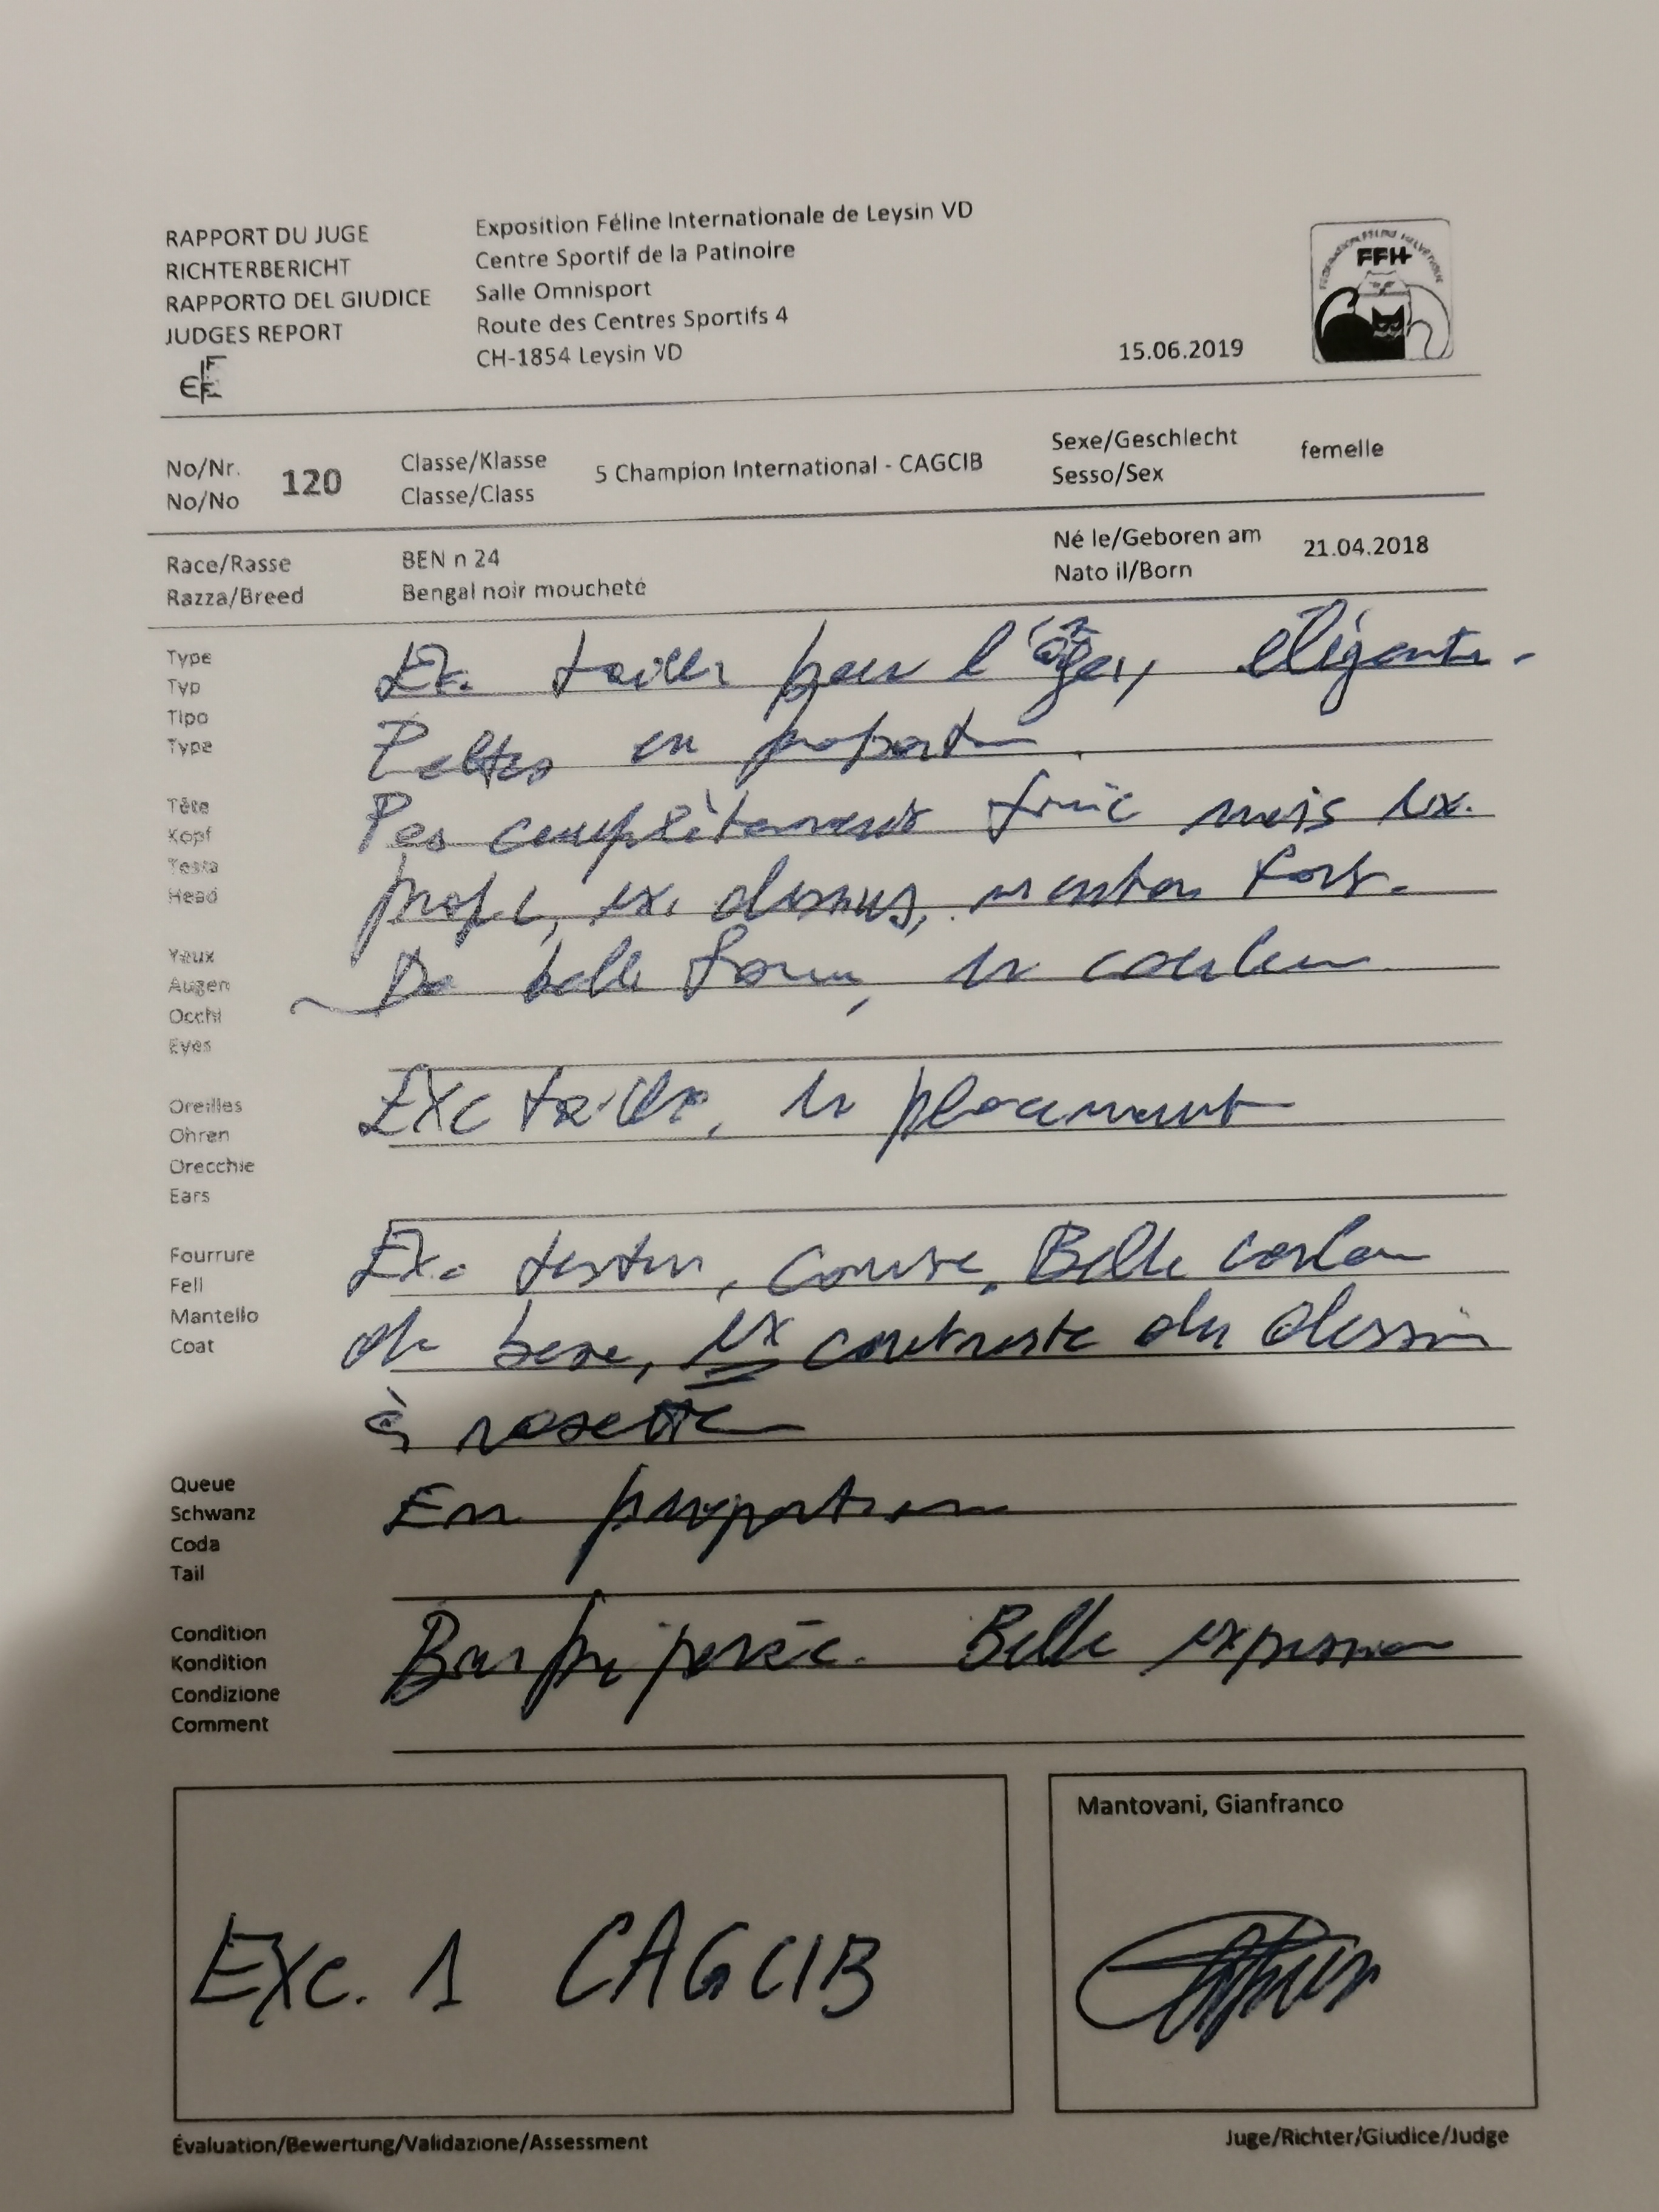 RAPPORT DU JUGE
RICHTERBERICHT
RAPPORTO DEL GIUDICE
JUDGES REPORT
FIFe
Exposition Féline Internationale de Leysin VD
Centre Sportif de la Patinoire
Salle Omnisport
Route des Centres Sportifs 4
CH-1854 Leysin VD
15.06.2019
FFH
No/Nr.
No/No
120
Classe/Klasse
Classe/Class
5 Champion International - CAGCIB
Sexe/Geschlecht
Sesso/Sex
femelle
Race/Rasse
Razza/Breed
BEN n 24
Bengal noir moucheté
Né le/Geboren am
Nato il/Born
21.04.2018
Type
Typ
Tipo
Type
Ex. taille pour l'âge, élégante.
Pattes en proportion.
Tête
Kopf
Testa
Head
Pas complètement finie mais ex.
profil, ex. menton fort.
Yeux
Augen
Occhi
Eyes
De belle forme, couleur
Oreilles
Ohren
Orecchie
Ears
Exc taille, placement
Fourrure
Fell
Mantello
Coat
Ex. texture, courte, Belle couleur
de base, ex contraste du dessin
à rosette
Queue
Schwanz
Coda
Tail
En proportion
Condition
Kondition
Condizione
Comment
Bien préparée. Belle expression
Exc. 1 CAGCIB
Mantovani, Gianfranco
Évaluation/Bewertung/Validazione/Assessment
Juge/Richter/Giudice/Judge